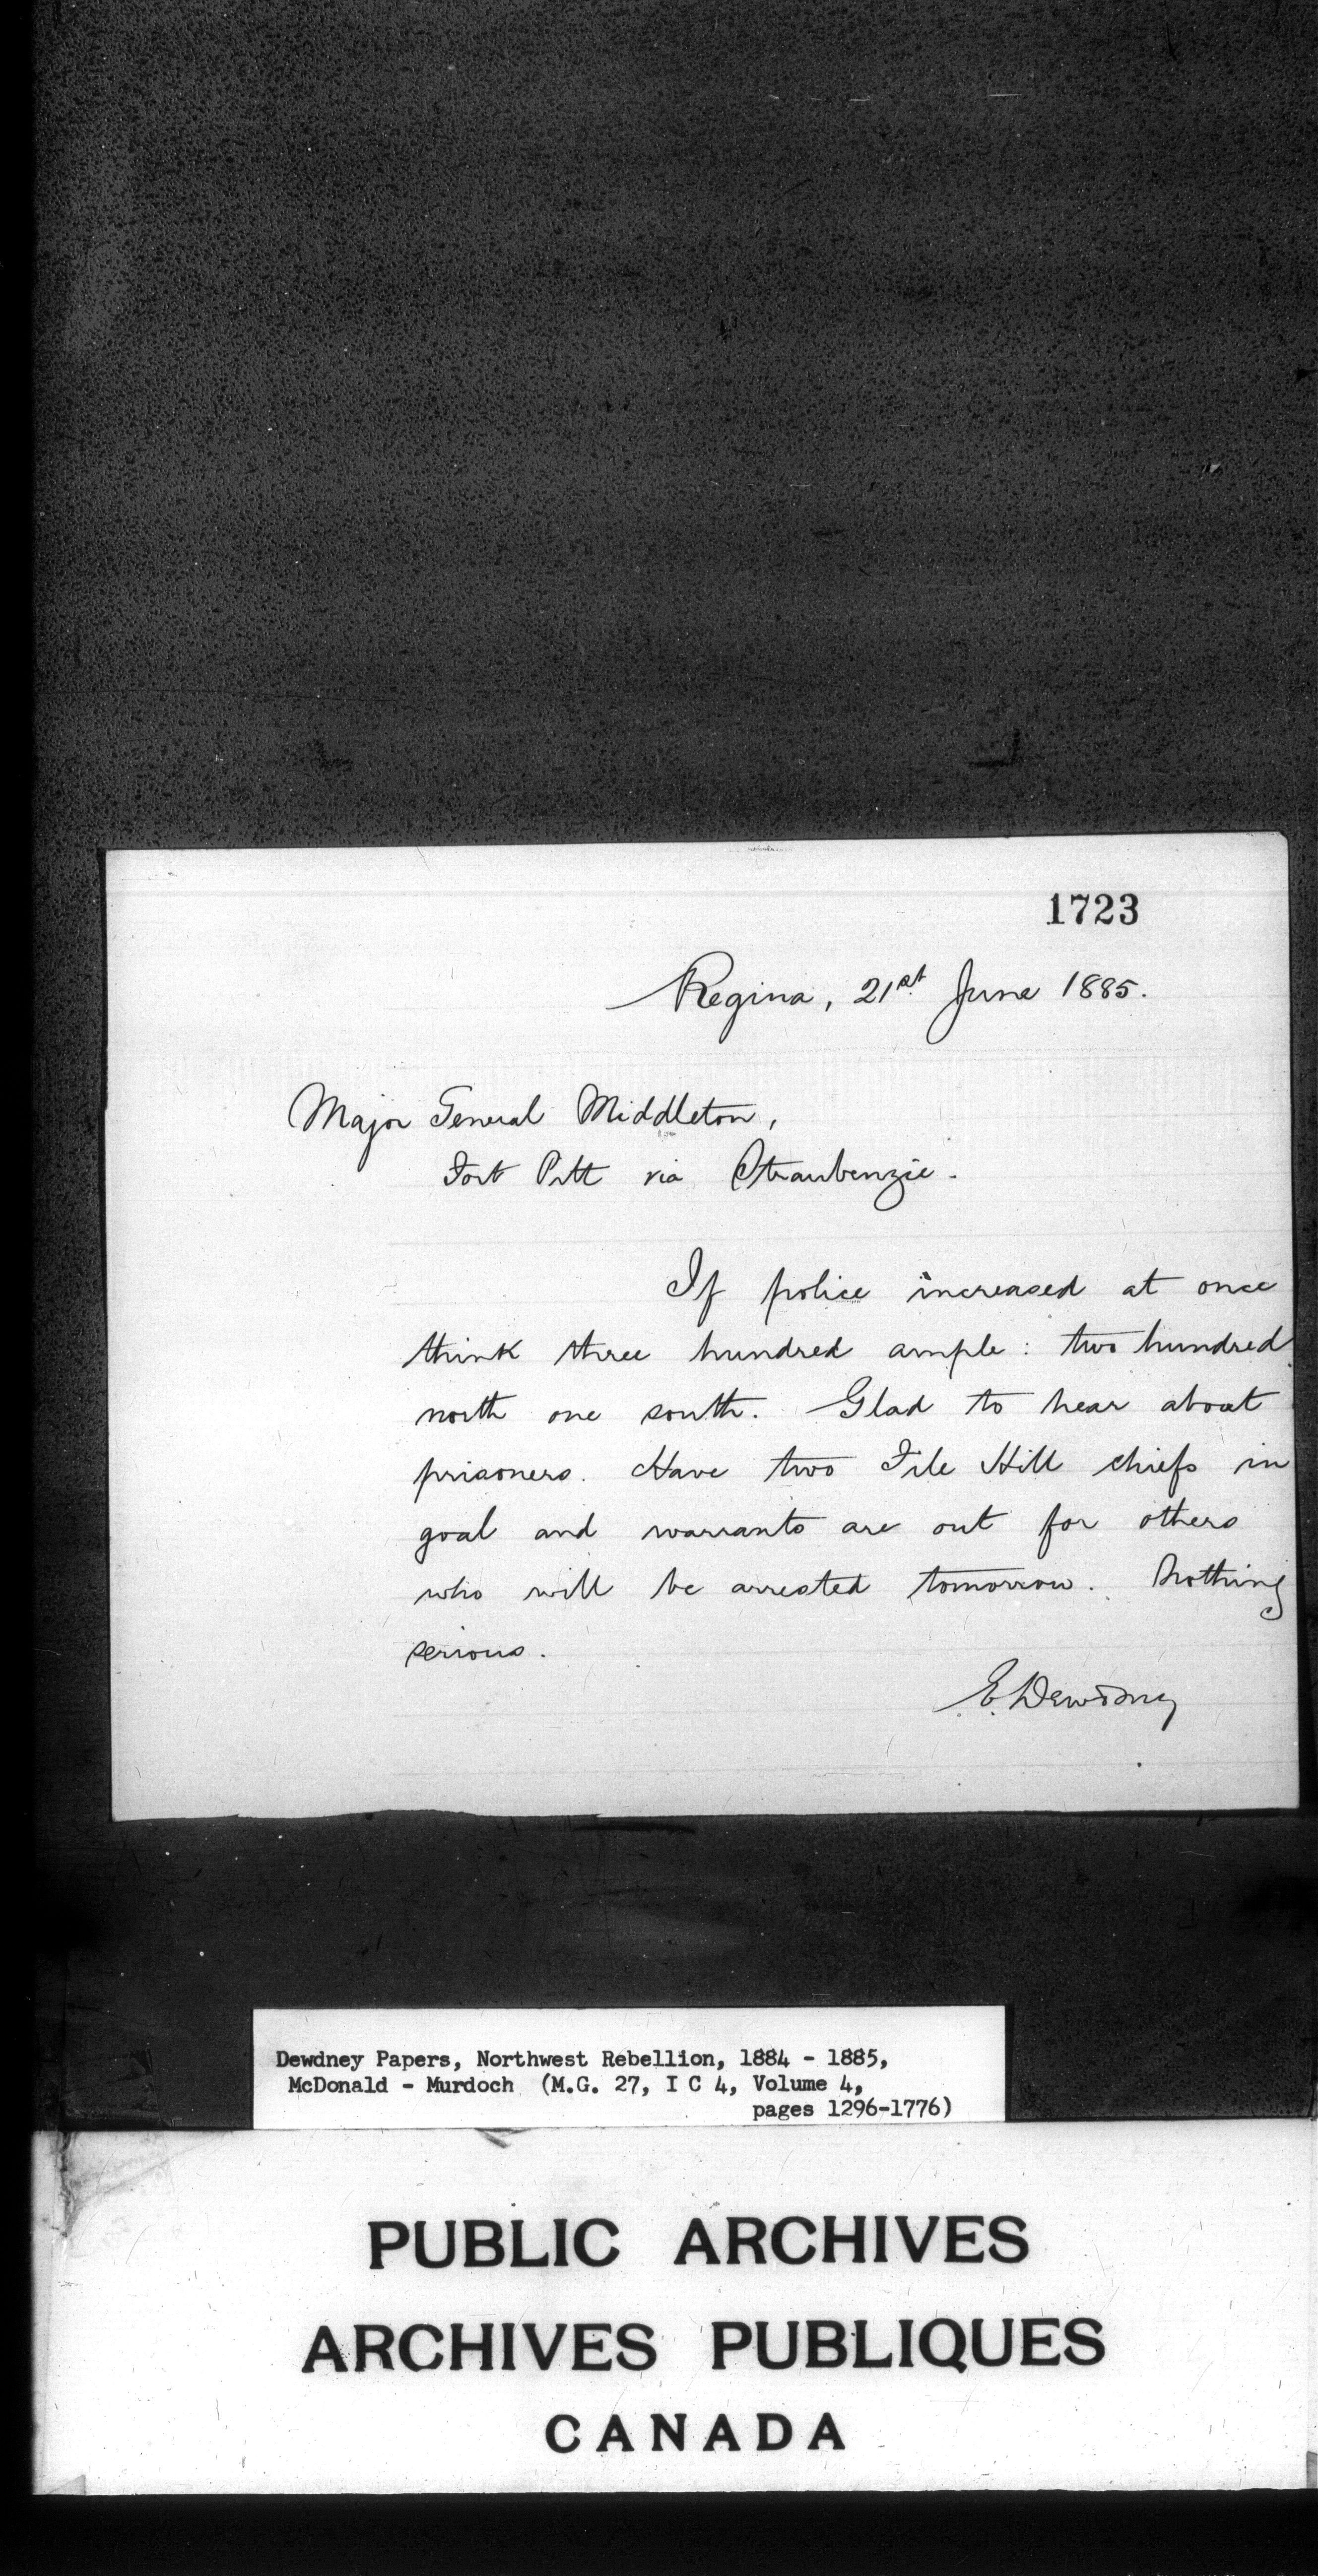 1723
Regina, 21st June 1885.
Major General Middleton,
Fort Pitt via Straubenzie.
If police increased at once
think three hundred ample: two hundred
north one south. Glad to hear about
prisoners. Have two File Hill chiefs in
goal and warrants are out for others
who will be arrested tomorrow. Nothing
serious.
E. Dewdney
Dewdney Papers, Northwest Rebellion, 1884 - 1885,
McDonald - Murdoch (M.G. 27, I C 4, Volume 4,
pages 1296-1776)
PUBLIC ARCHIVES
ARCHIVES PUBLIQUES
CANADA